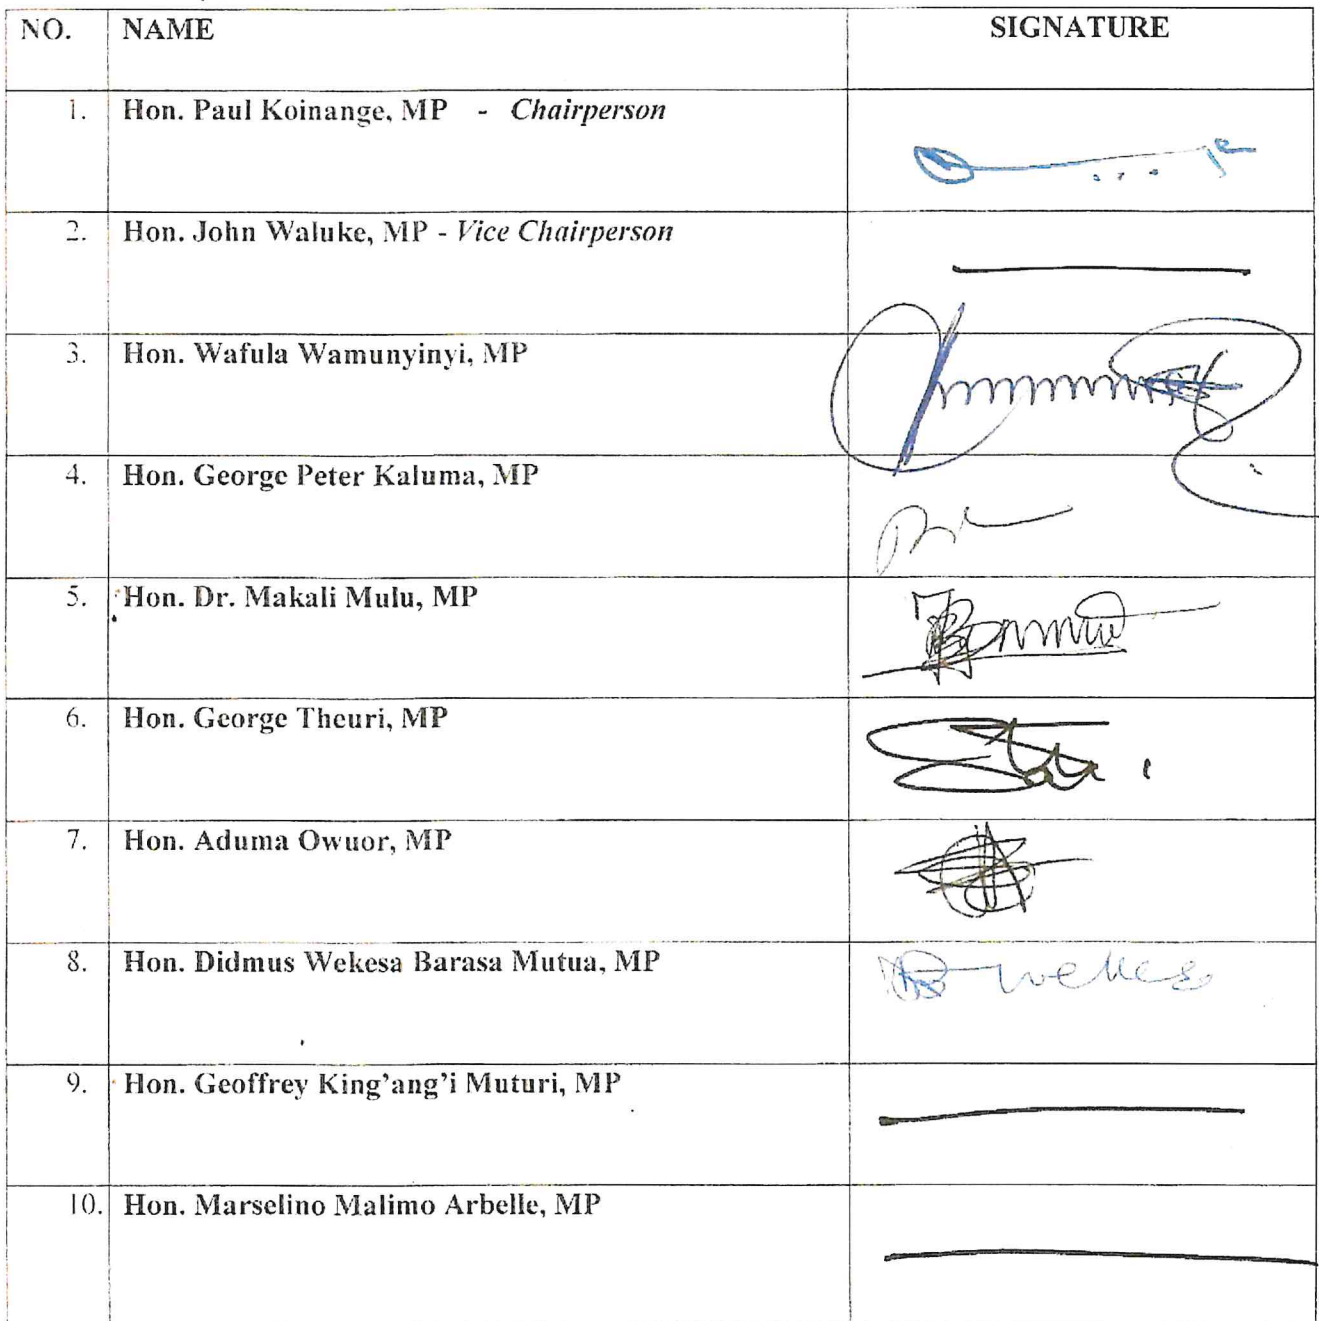 NO. NAME SIGNATURE
1. Hon. Paul Koinange, MP - Chairperson
2. Hon. John Waluke, MP - Vice Chairperson
3. Hon. Wafula Wamunyinyi, MP
4. Hon. George Peter Kaluma, MP
5. Hon. Dr. Makali Mulu, MP
6. Hon. George Theuri, MP
7. Hon. Aduma Owuor, MP
8. Hon. Didmus Wekesa Barasa Mutua, MP
9. Hon. Geoffrey King'ang'i Muturi, MP
10. Hon. Marselino Malimo Arbelle, MP